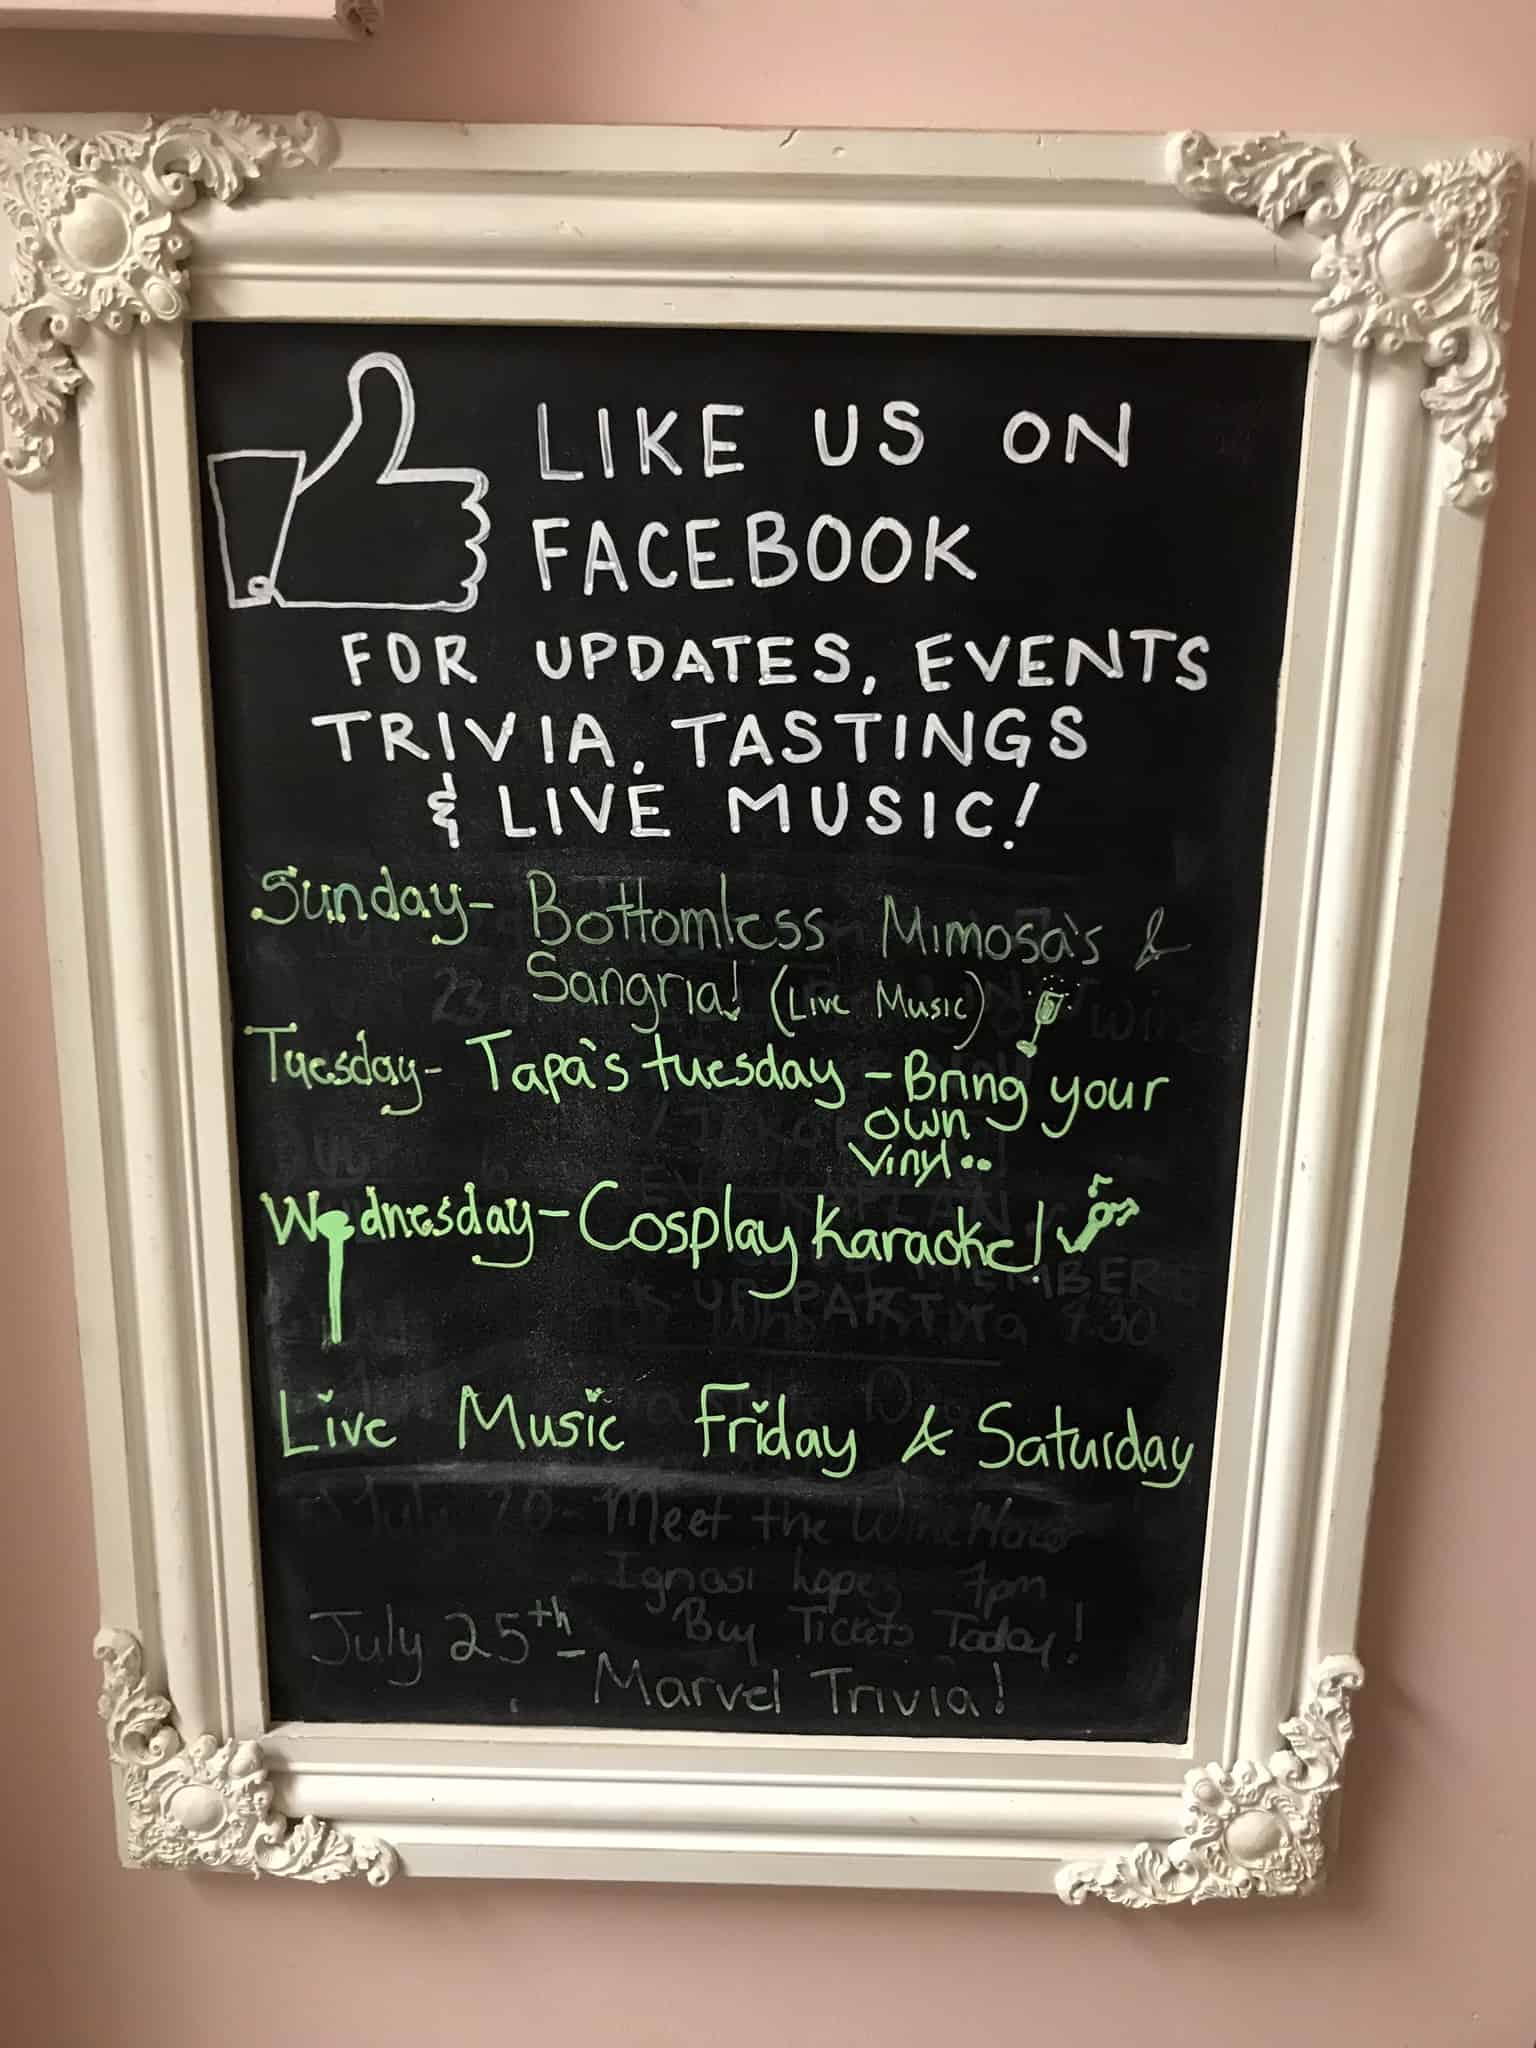 LIKE US ON
FACEBOOK
FOR UPDATES, EVENTS
TRIVIA, TASTINGS
& LIVE MUSIC!
Sunday- Bottomless Mimosa's &
Sangria! (Live Music)
Tuesday- Tapa's tuesday - Bring your
own
vinyl..
Wednesday- Cosplay Karaoke!
Live Music Friday & Saturday
July 20- Meet the Wine
Ignasi lopez 7pm
Buy Tickets Today!
July 25th-
Marvel Trivia!